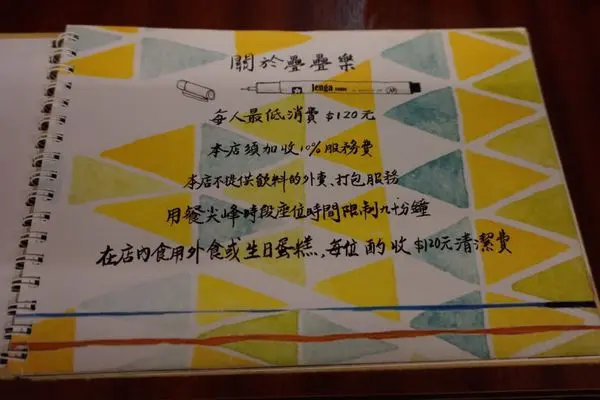 關於疊疊樂
Jenga
每人最低消費 $120元
本店須加收10%服務費
本店不提供飲料的外賣、打包服務
用餐尖峰時段座位時間限制九十分鐘
在店內食用外食或生日蛋糕,每位酌收 $120元清潔費